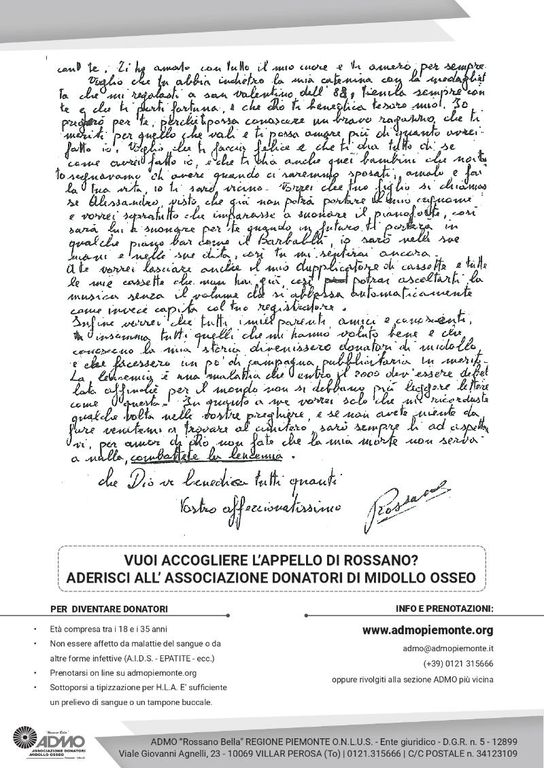 cand te. Ti ho amato con tutto il mio cuore e ti amerò per sempre
Voglio che tu abbia indietro la mia catenina con la medagliet
ta che mi regalasti a san valentino dell'88, tienila sempre con
te e che ti porti fortuna, e che Dio ti benedica tesoro mio. Io
pregerò per te, perchè possa conoscere un bravo ragazzo, che ti
meriti per quello che vali e ti possa amare più di quanto avrei
fatto io, Voglio che ti faccia felice e che ti dia tutto di se
come avrei fatto io, e che ti dia anche quei bambini che noi
sognavamo di avere quando ci saremmo sposati, amalo e fai
la tua vita, io ti sarò vicino. Vorrei che tuo figlio si chiamas
se Alessandro, visto che già non potrà portare il mio cognome
e vorrei sopratutto che imparasse a suonare il pianoforte, così
sarà lui a suonare per te quando in futuro ti porterà in
qualche piano bar come il Barbablù, io sarò nelle sue
mani e nelle sue dita, così tu mi sentirai ancora.
A te vorrei lasciare anche il mio dupplicatore di cassette e tutte
le mie cassette che non hai già, così potrai ascoltarti la
musica senza il volume che si abbassa automaticamente
come invece capita col tuo registratore.
Infine vorrei che tutti i miei parenti, amici e conoscenti,
insomma tutti quelli che mi hanno voluto bene e che
conoscono la mia storia divenissero donatori di midollo,
e che facessero un po' di campagna pubblicitaria in merito.
La leucemia è una malattia che entro il 2000 dev'essere debel
lata affinchè per il mondo non si debbano più leggere lettere
come questa. In quanto a me vorrei solo che mi ricordaste
qualche volta nelle vostre preghiere, e se non avete niente da
fare venitemi a trovare al cimitero, sarò sempre lì ad aspetta
vi, per amor di Dio non fate che la mia morte non serva
a nulla, combattete la leucemia.
che Dio vi benedica tutti quanti
Vostro affezionatissimo
Rossano
VUOI ACCOGLIERE L'APPELLO DI ROSSANO?
ADERISCI ALL' ASSOCIAZIONE DONATORI DI MIDOLLO OSSEO
PER DIVENTARE DONATORI
• Età compresa tra i 18 e i 35 anni
• Non essere affetto da malattie del sangue o da
altre forme infettive (A.I.D.S. - EPATITE - ecc.)
• Prenotarsi on line su admopiemonte.org
• Sottoporsi a tipizzazione per H.L.A. E' sufficiente
un prelievo di sangue o un tampone buccale.
INFO E PRENOTAZIONI:
www.admopiemonte.org
admo@admopiemonte.it
(+39) 0121 315666
oppure rivolgiti alla sezione ADMO più vicina
ADMO
ASSOCIAZIONE DONATORI
MIDOLLO OSSEO
ADMO "Rossano Bella" REGIONE PIEMONTE O.N.L.U.S. - Ente giuridico - D.G.R. n. 5 - 12899
Viale Giovanni Agnelli, 23 - 10069 VILLAR PEROSA (To) | 0121.315666 | C/C POSTALE n. 34123109